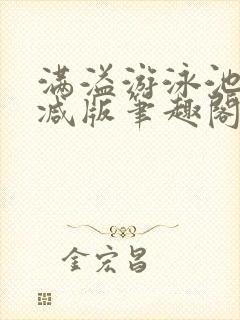 满溢游泳池
减版笔趣阁
金宏昌